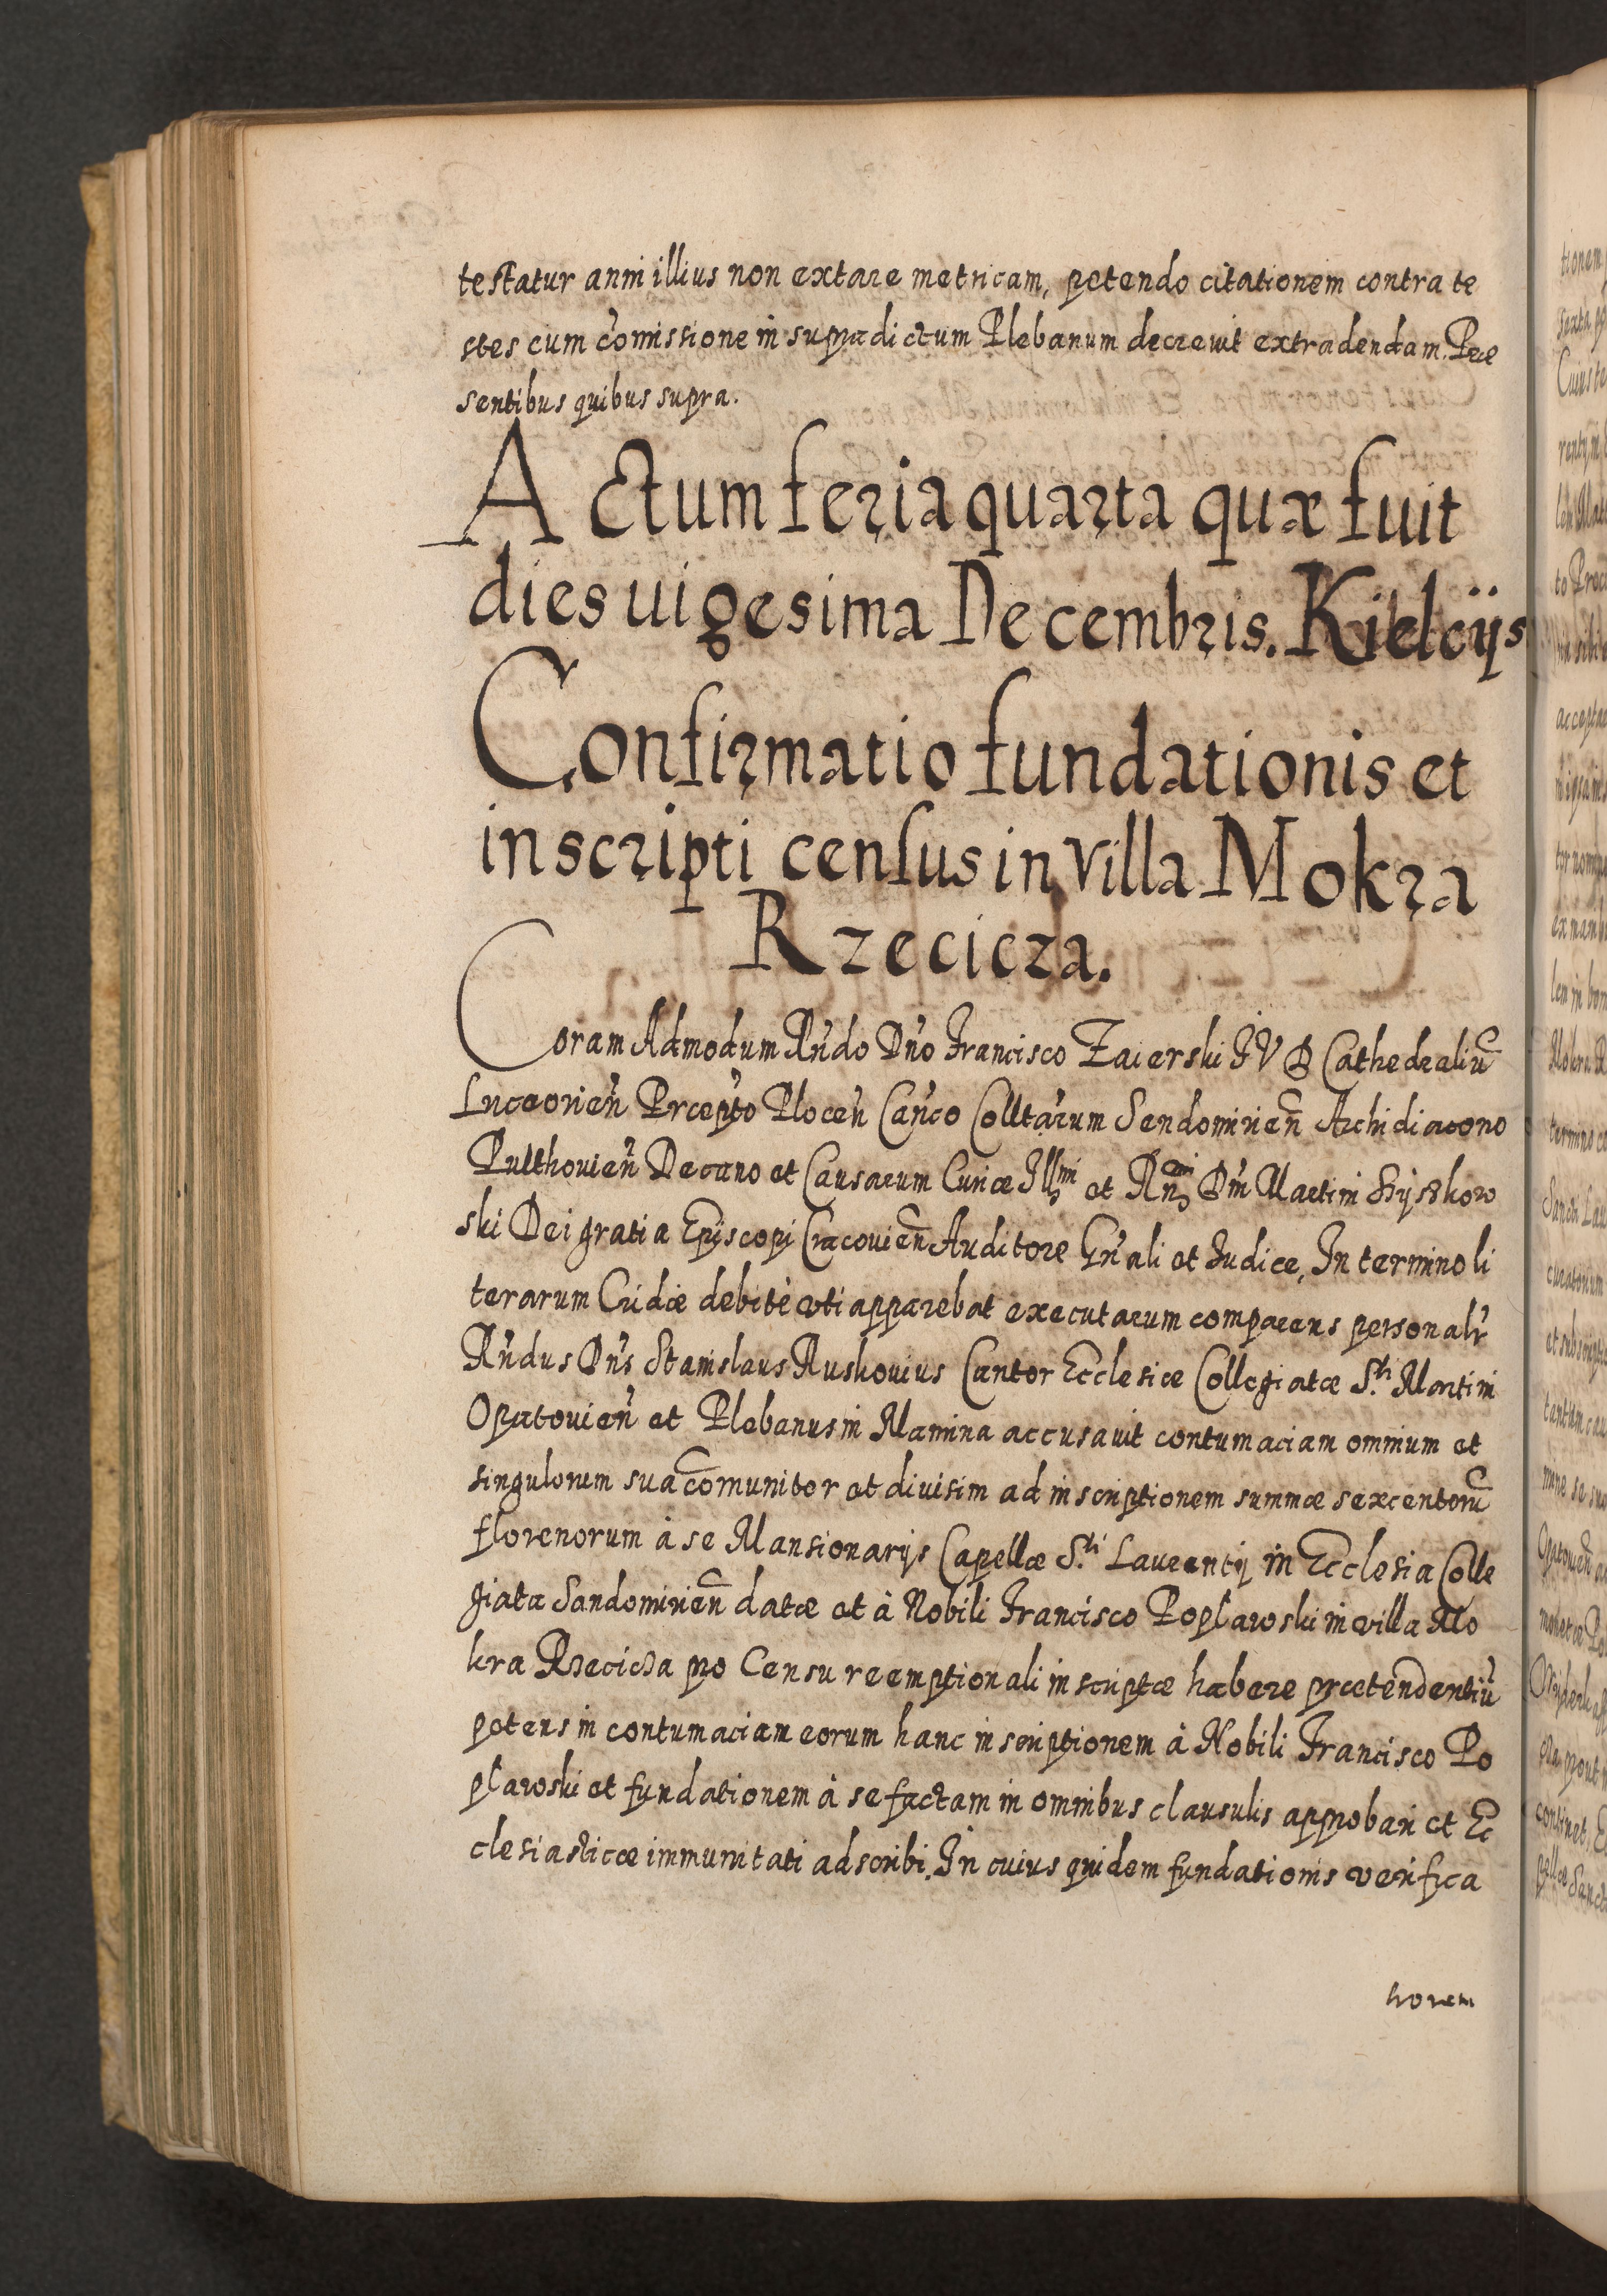 testatur anni illius non extare metricam, petendo citationem contra te
stes cum com̃issione in supradictum Plebanum decrevit extradendam. Præ
sentibus quibus supra.
Actum feria quarta quæ fuit
dies uigesima Decembris. Kielcijs
Confirmatio fundationis et
inscripti census in villa Mokra
Rzecicza.
Coram Admodum Rñdo Dño Francisco Zaierski IVD Cathedraliũ
Luceorieñ PræptoPloceñ Cañco Colltarum Sendomirieñ Archidiacono
Pulthovieñ Decano et Causarum Curiæ Illmi et Rñmi Dñi Martini Szyszkow
ski Dei gratia Episcopi Cracovieñ Auditore Gñali et Iudice, In termino li
terarum Cridæ debitè uti apparebat executarum comparens personalr
Rñdus Dñs Stanislaus Ruskovius Cantor Ecclesiæ Collegiatæ S.ti Martini
Opatovieñ et Plebanus in Manina accusavit contumaciam omnium et
singulorum sua com̃unitor et divisim ad inscriptionem summæ sexcentorũ
florenorum à se Mansionarijs Capellæ S.ti Laurentij in Ecclesia Colle
giata Sandomirieñ datæ et à Nobili Francisco Popławski in villa Mo
kra Rzecicza pro Censu reemptionali inscriptæ habere prætendentiũ
petens in contumaciam eorum hanc inscriptionem à Nobili Francisco Po
pławski et fundationem à se factam in omnibus clausulis approbari et Ec
clesiasticæ immunitati adscribi. In cuius quidem fundationis verifica